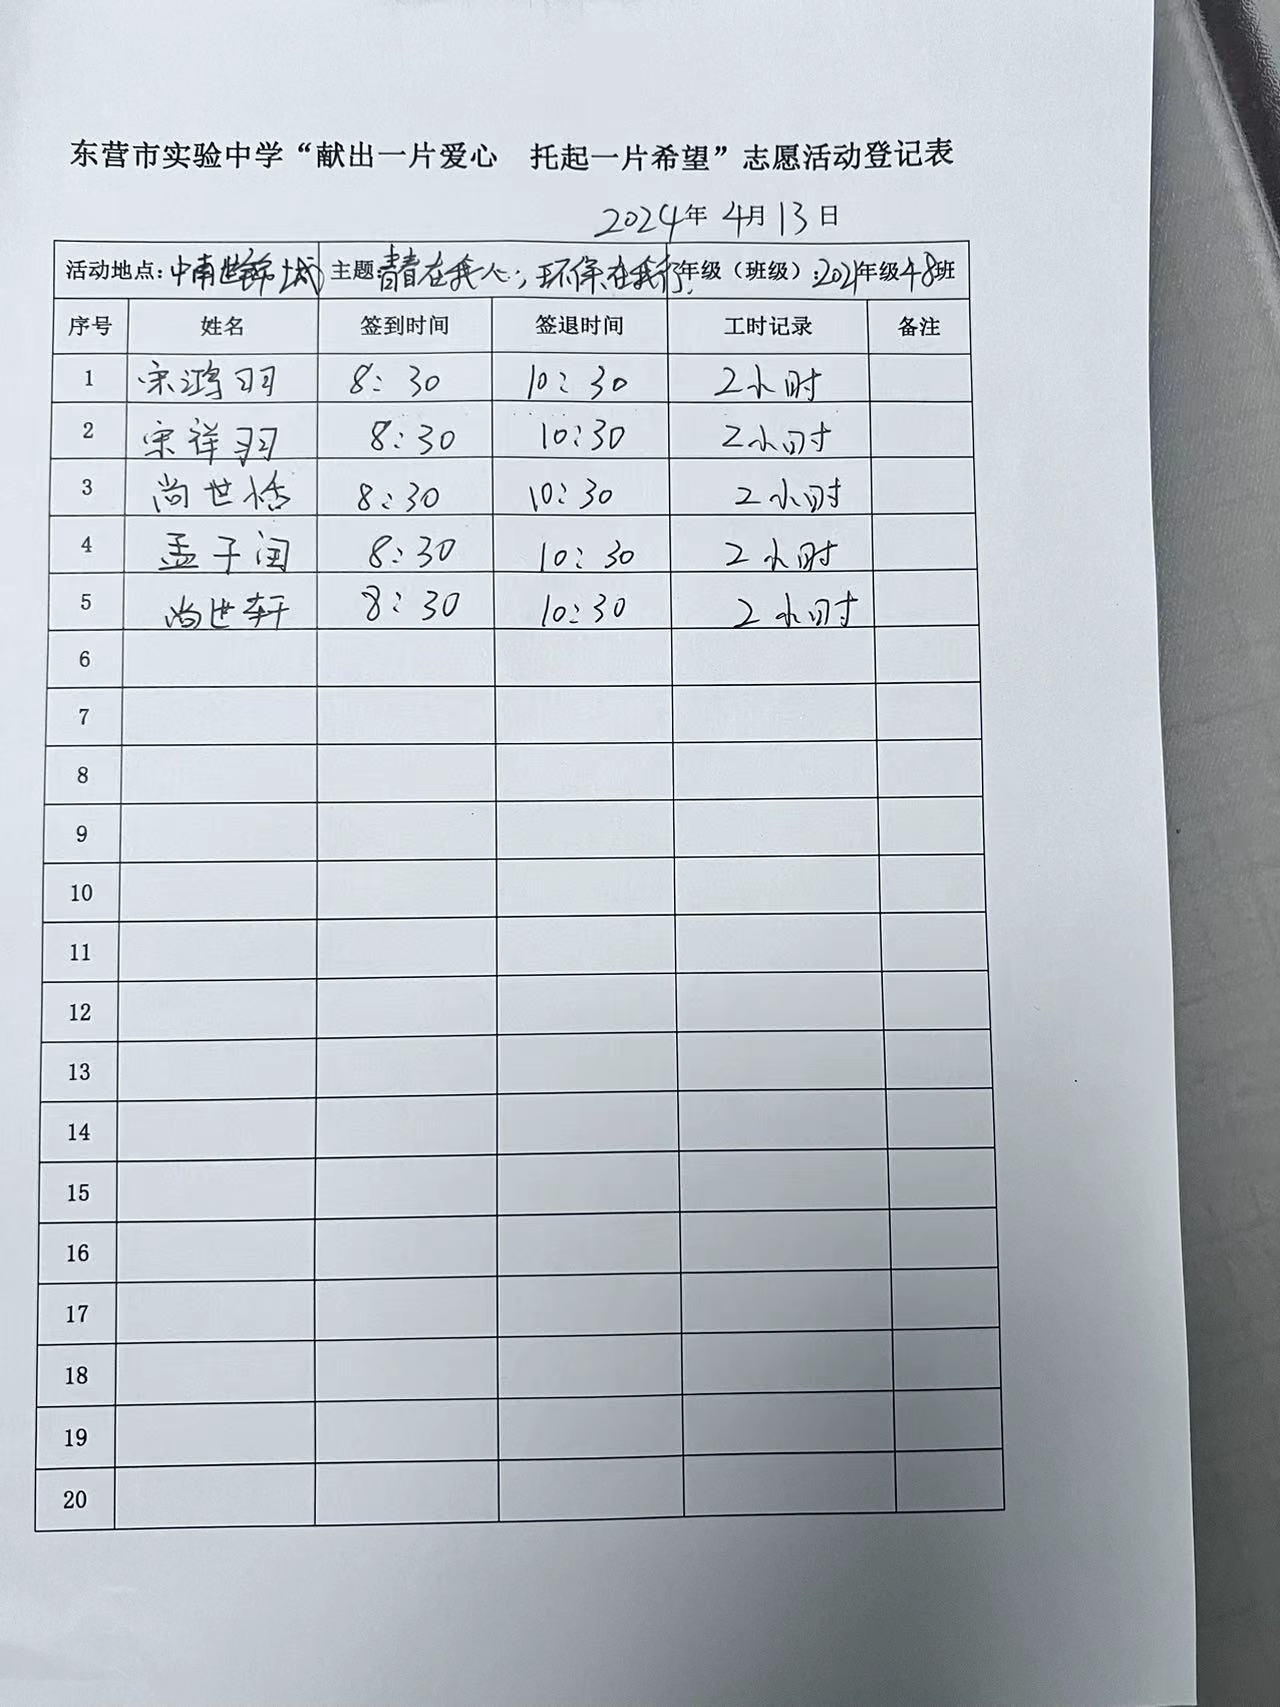 东营市实验中学“献出一片爱心 托起一片希望”志愿活动登记表
2024年 4月 13日
活动地点:中南世锦城 主题:青春在我心,环保在我行 年级(班级):2021年级48班
序号 姓名 签到时间 签退时间 工时记录 备注
1 宋鸿羽 8:30 10:30 2小时
2 宋祥羽 8:30 10:30 2小时
3 尚世恬 8:30 10:30 2小时
4 孟子闰 8:30 10:30 2小时
5 尚世轩 8:30 10:30 2小时
6
7
8
9
10
11
12
13
14
15
16
17
18
19
20